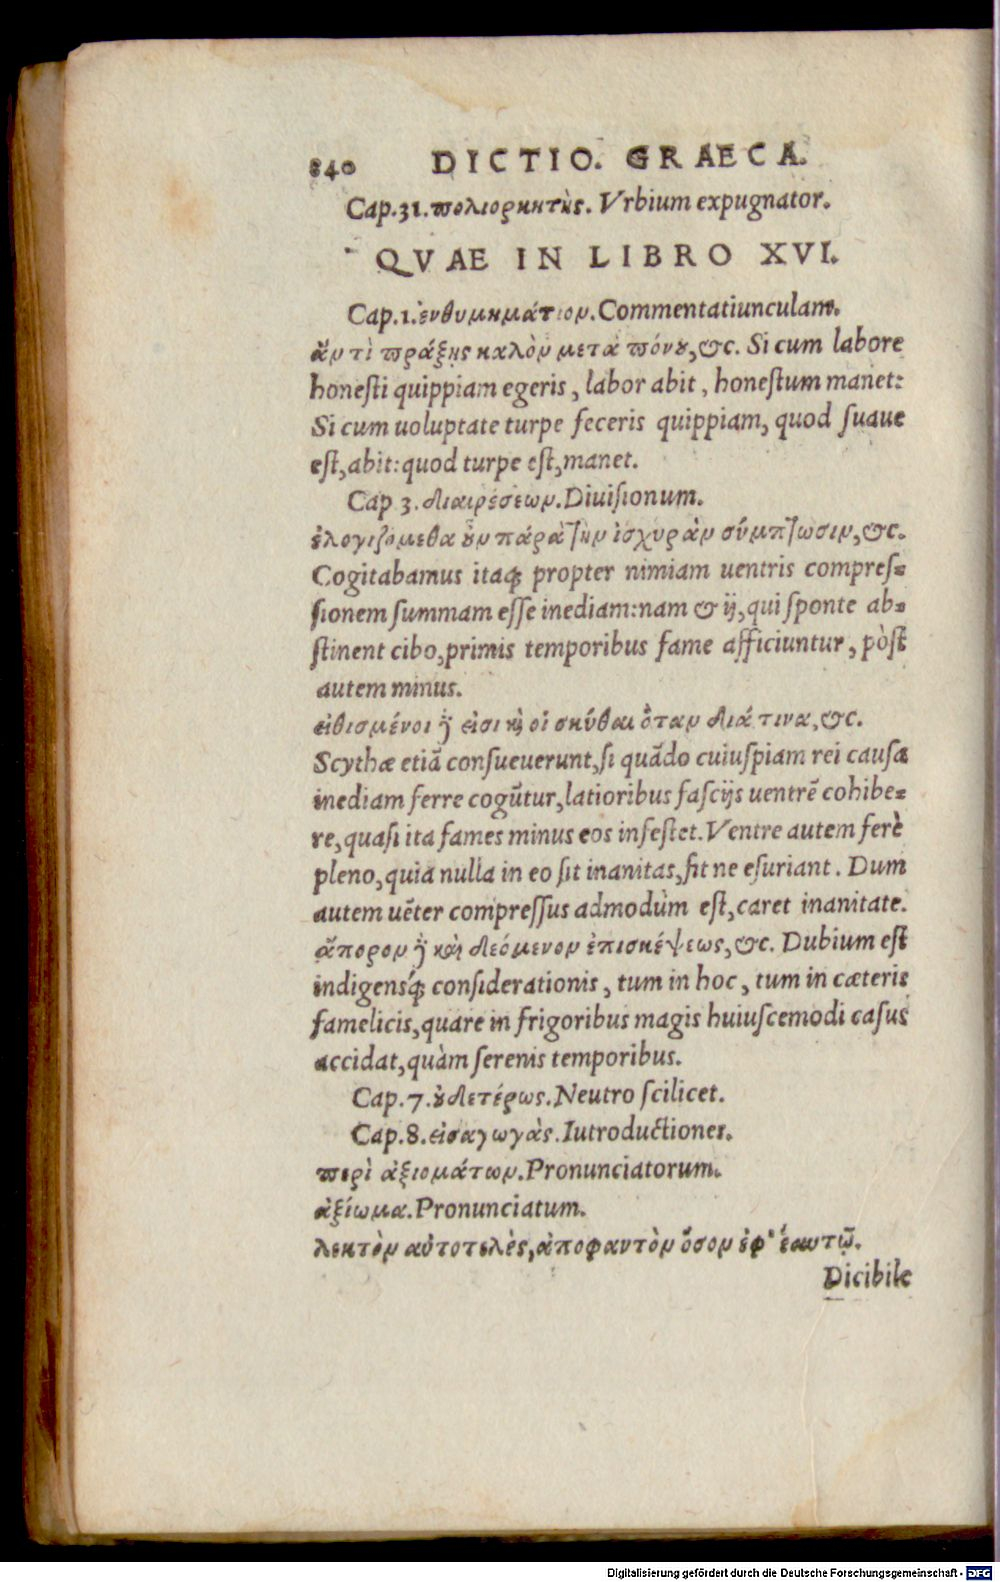 840 DICTIO. GRAECA.
Cap.31.πολιορκητὴς. Vrbium expugnator.
QVAE IN LIBRO XVI.
Cap.1.ἐνθυμημάτιον.Commentatiunculam.
ἄν τὶ πράξῃς καλὸν μετὰ πόνȣ,&c. Si cum labore
honeſti quippiam egeris, labor abit, honeſtum manet:
Si cum uoluptate turpe feceris quippiam, quod ſuaue
eſt,abit:quod turpe eſt,manet.
Cap 3.διαιρέσεων.Diuiſionum.
ἐλογιζομεθα ȣ̓ν πάρὰ τὴν ἰσχυρὰν σύμπτωσιν,&c.
Cogitabamus itaqꝫ propter nimiam uentris compreſ=
ſionem ſummam eſſe inediam:nam & ij,qui ſponte ab=
ſtinent cibo,primis temporibus fame afficiuntur, pòſt
autem minus.
εἰθισμένοι δ̓ὲ εἰσι κỳ οἱ σκύθαι ὅταν διά τινα,&c.
Scythæ etiã conſueuerunt,ſi quãdo cuiuſpiam rei cauſa
inediam ferre cogũtur,latioribus faſcijs uentrẽ cohibe=
re,quaſi ita fames minus eos infeſtet.Ventre autem ferè
pleno,quia nulla in eo ſit inanitas,fit ne eſuriant. Dum
autem uẽter compreſſus admodùm eſt,caret inanitate.
ἄπορον δ̓ὲ καὶ δεόμενον ἐπισκέψεως,&c. Dubium eſt
indigensq́ꝫ conſiderationis, tum in hoc, tum in cæteris
famelicis,quare in frigoribus magis huiuſcemodi caſus
accidat,quàm ſerenis temporibus.
Cap.7.ȣ̓δετέρως.Neutro ſcilicet.
Cap.8.εἰσαγωγὰς.Iutroductiones.
περὶ ἀξιομάτων.Pronunciatorum.
ἀξίωμα.Pronunciatum.
λεκτὸν αὐτοτελὲς,ἀποφαντὸν ὅσον ἐφ' ἑαυτῷ.
Dicibile
Digitalisierung gefördert durch die Deutsche Forschungsgemeinschaft - DFG